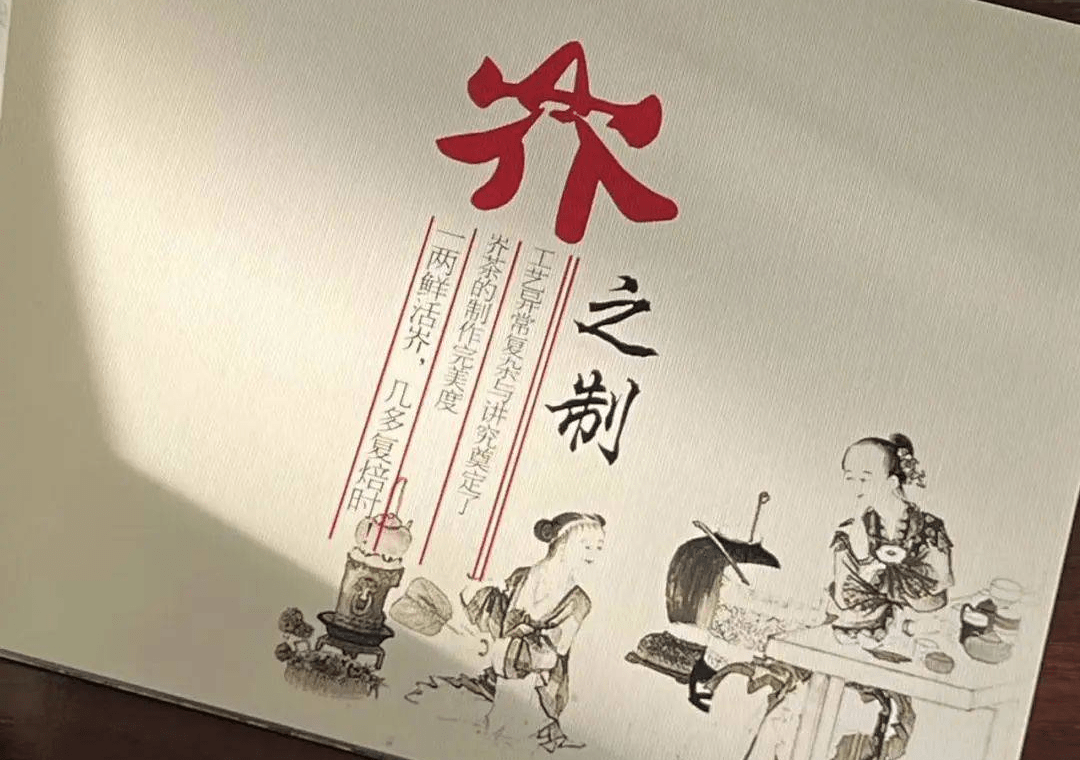 岕
之制
工艺异常复杂与讲究奠定了
岕茶的制作完美度
一两鲜活岕，几多复焙时